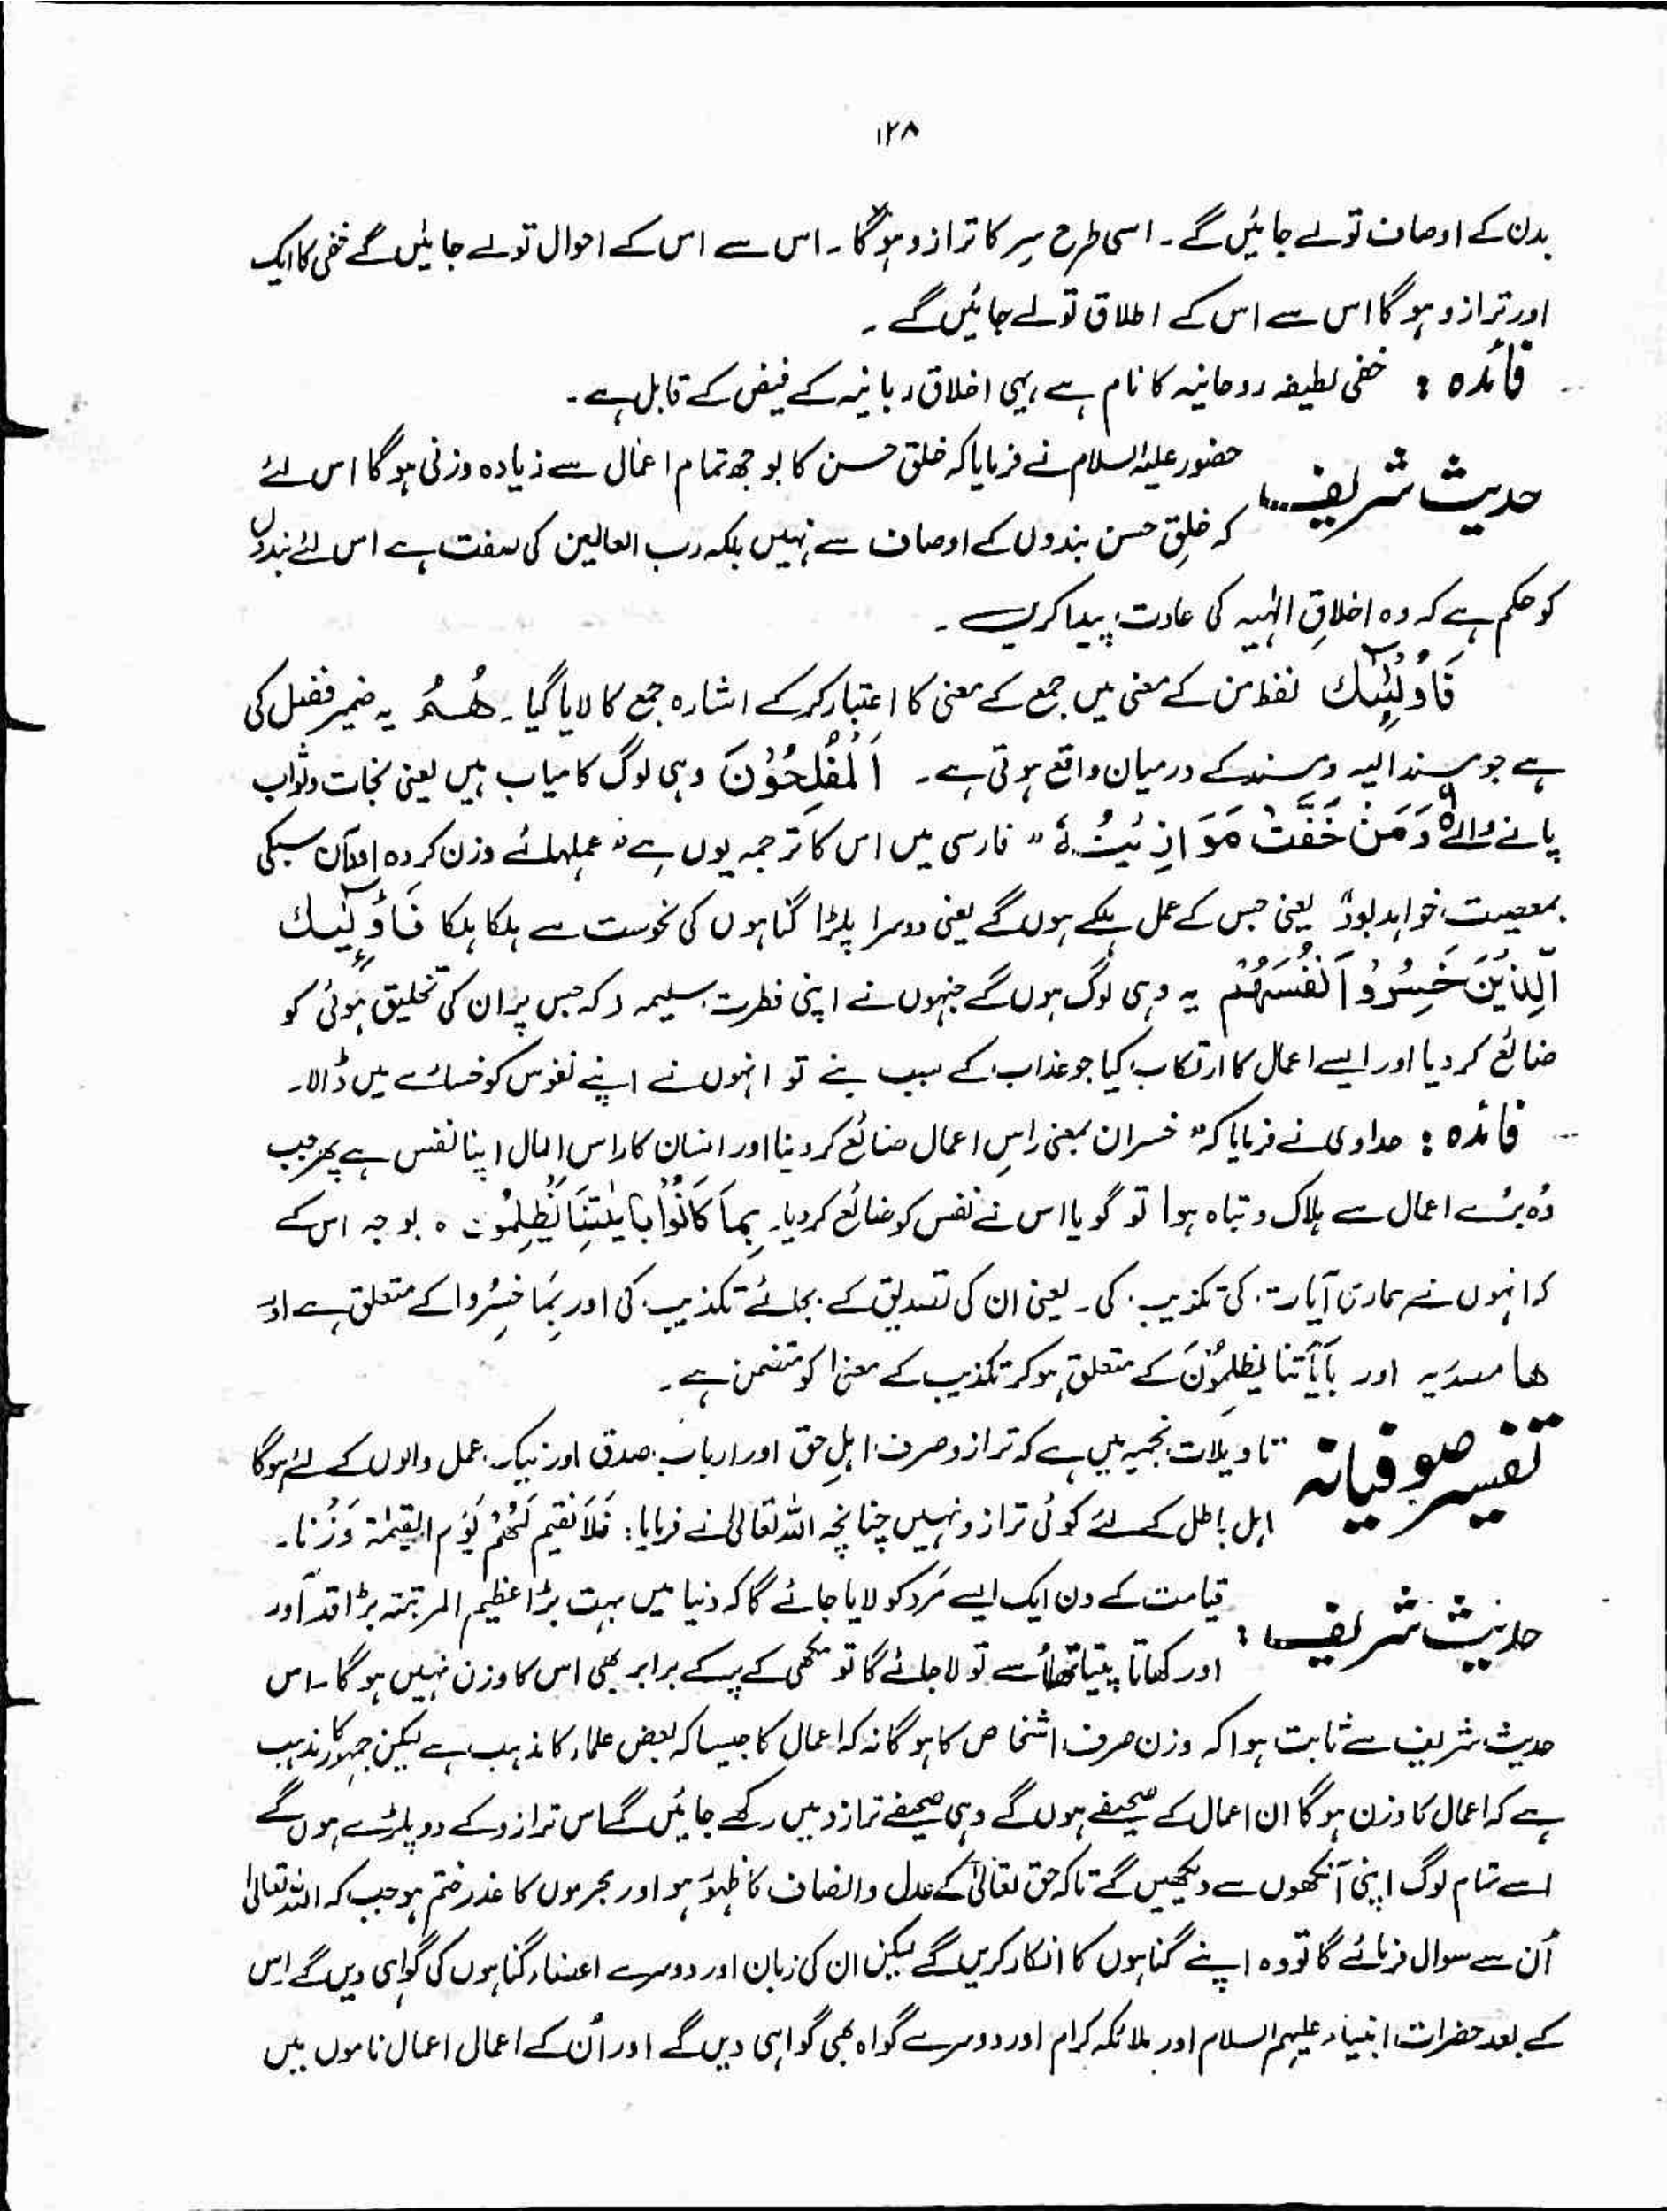 ١٢٨
بدن کے اوصاف تولے جائیں گے۔ اسی طرح سِر کا ترازو ہوگا۔ اس سے اس کے احوال تولے جائیں گے خفی کا ایک
اور ترازو ہوگا اس سے اس کے اطلاق تولے جائیں گے۔
فائدہ : خفی لطیفہ روحانیہ کا نام ہے یہی اخلاق ربانیہ کے فیض کے قابل ہے۔
حدیث شریف حضور علیہ السلام نے فرمایا کہ خلق حسن کا بوجھ تمام اعمال سے زیادہ وزنی ہوگا اس لئے
کہ خلقِ حسن بندوں کے اوصاف سے نہیں بلکہ رب العالمین کی صفت ہے اس لئے بندوں
کو حکم ہے کہ وہ اخلاقِ الٰہیہ کی عادت پیدا کریں۔
فَاُولٰٓئِكَ لفظ من کے معنی میں جمع کے معنی کا اعتبار کرکے اشارہ جمع کا لایا گیا۔ هُمُ یہ ضمیر فصل کی
ہے جو مسند الیہ و مسند کے درمیان واقع ہوتی ہے۔ اَلْمُفْلِحُوْنَ وہی لوگ کامیاب ہیں یعنی نجات و ثواب
پانے والے وَمَنْ خَفَّتْ مَوَازِيْنُهٗ " فارسی میں اس کا ترجمہ یوں ہے " عملہائے وزن کردہ اوآں سبکی
بمعصیت خواہد بود" یعنی جس کے عمل ہلکے ہوں گے یعنی دوسرا پلڑا گناہوں کی نحوست سے ہلکا ہلکا فَاُولٰٓئِكَ
الَّذِيْنَ خَسِرُوْا اَنْفُسَهُمْ یہ وہی لوگ ہوں گے جنہوں نے اپنی فطرت سلیمہ (کہ جس پر ان کی تخلیق ہوئی کو
ضائع کر دیا اور ایسے اعمال کا ارتکاب کیا جو عذاب کے سبب بنے تو انہوں نے اپنے نفوس کو خسارے میں ڈالا۔
فائدہ : حدادی نے فرمایا کہ " خسران بمعنی راس اعمال ضائع کر دینا اور انسان کا راس المال اپنا نفس ہے پھر جب
وُہ بُرے اعمال سے ہلاک و تباہ ہوا تو گویا اس نے نفس کو ضائع کر دیا۔ بِمَا كَانُوْا بِاٰيٰتِنَا يَظْلِمُوْنَ ○ بوجہ اس کے
کہ انہوں نے ہماری آیات کی تکذیب کی۔ یعنی ان کی تصدیق کے بجائے تکذیب کی اور بِمَا خسِرُوا کے متعلق ہے اور
ما مصدریہ اور بآیَاتنا یظلِمُوْنَ کے متعلق ہو کر تکذیب کے معنیٰ کو متضمن ہے۔
تفسیر صوفیانہ تاویلات نجمیہ میں ہے کہ ترازو صرف اہلِ حق اور ارباب صدق اور نیک عمل والوں کے لئے ہوگا
اہل باطل کے لئے کوئی ترازو نہیں چنانچہ اللہ تعالیٰ نے فرمایا: فَلَا نُقِيْمُ لَهُمْ يَوْمَ الْقِيٰمَةِ وَزْنًا۔
حدیث شریف : قیامت کے دن ایک ایسے مَرد کو لایا جائے گا کہ دنیا میں بہت بڑا عظیم المرتبتہ بڑا قد آور
اور کھاتا پیتا تھا اُسے تولا جائے گا تو مکھی کے پر کے برابر بھی اس کا وزن نہیں ہوگا۔ اس
حدیث شریف سے ثابت ہوا کہ وزن صرف اشخاص کا ہوگا نہ کہ اعمال کا جیسا کہ بعض علماء کا مذہب ہے لیکن جمہور کا مذہب
ہے کہ اعمال کا وزن ہوگا ان اعمال کے صحیفے ہوں گے وہی صحیفے ترازو میں رکھے جائیں گے اس ترازو کے دو پلڑے ہوں گے
اسے تمام لوگ اپنی آنکھوں سے دیکھیں گے تاکہ حق تعالیٰ کے عدل و انصاف کا ظہور ہو اور مجرموں کا عذر ختم ہو جب کہ اللہ تعالیٰ
اُن سے سوال فرمائے گا تو وہ اپنے گناہوں کا انکار کریں گے لیکن ان کی زبان اور دوسرے اعضاء گناہوں کی گواہی دیں گے اس
کے بعد حضرات انبیاء علیہم السلام اور ملائکہ کرام اور دوسرے گواہ بھی گواہی دیں گے اور اُن کے اعمال اعمال ناموں میں